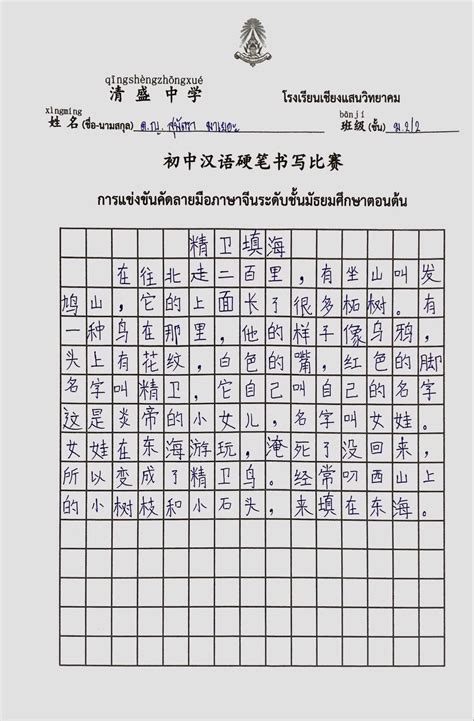 qīngshèngzhōngxué
清盛中学
โรงเรียนเชียงแสนวิทยาคม
xìngmíng
姓名(ชื่อ-นามสกุล) ด.ญ. สุมิตรา มาเยอะ
bānjí
班级(ชั้น) ม.2/2
初中汉语硬笔书写比赛
การแข่งขันคัดลายมือภาษาจีนระดับชั้นมัธยมศึกษาตอนต้น
精卫填海
在往北走二百里，有坐山叫发
鸠山，它的上面长了很多柘树。有
一种鸟在那里，他的样子像乌鸦，
头上有花纹，白色的嘴，红色的脚
名字叫精卫，它自己叫自己的名字
这是炎帝的小女儿，名字叫女娃。
女娃在东海游玩，淹死了没回来，
所以变成了精卫鸟。经常叼西山上
的小树枝和小石头，来填在东海。